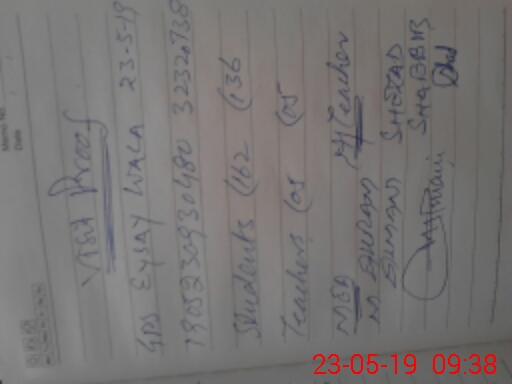 Memo No.
Date
Visit Proof
GPS Eysay Wala 23-5-19
19052309930480 32320738
Students (162 (136
Teachers (05 (05
MEA M/Teacher
M. EHSAN SHEZAD
SHABBIR
23-05-19 09:38